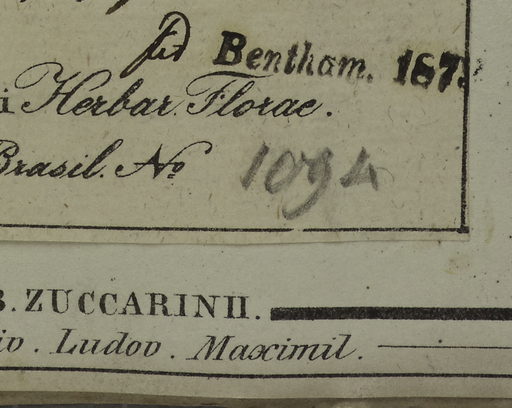 fid Bentham. 187
i Herbar. Florae.
Brasil. No 1094
B. ZUCCARINII.
iv. Ludov. Maximil.